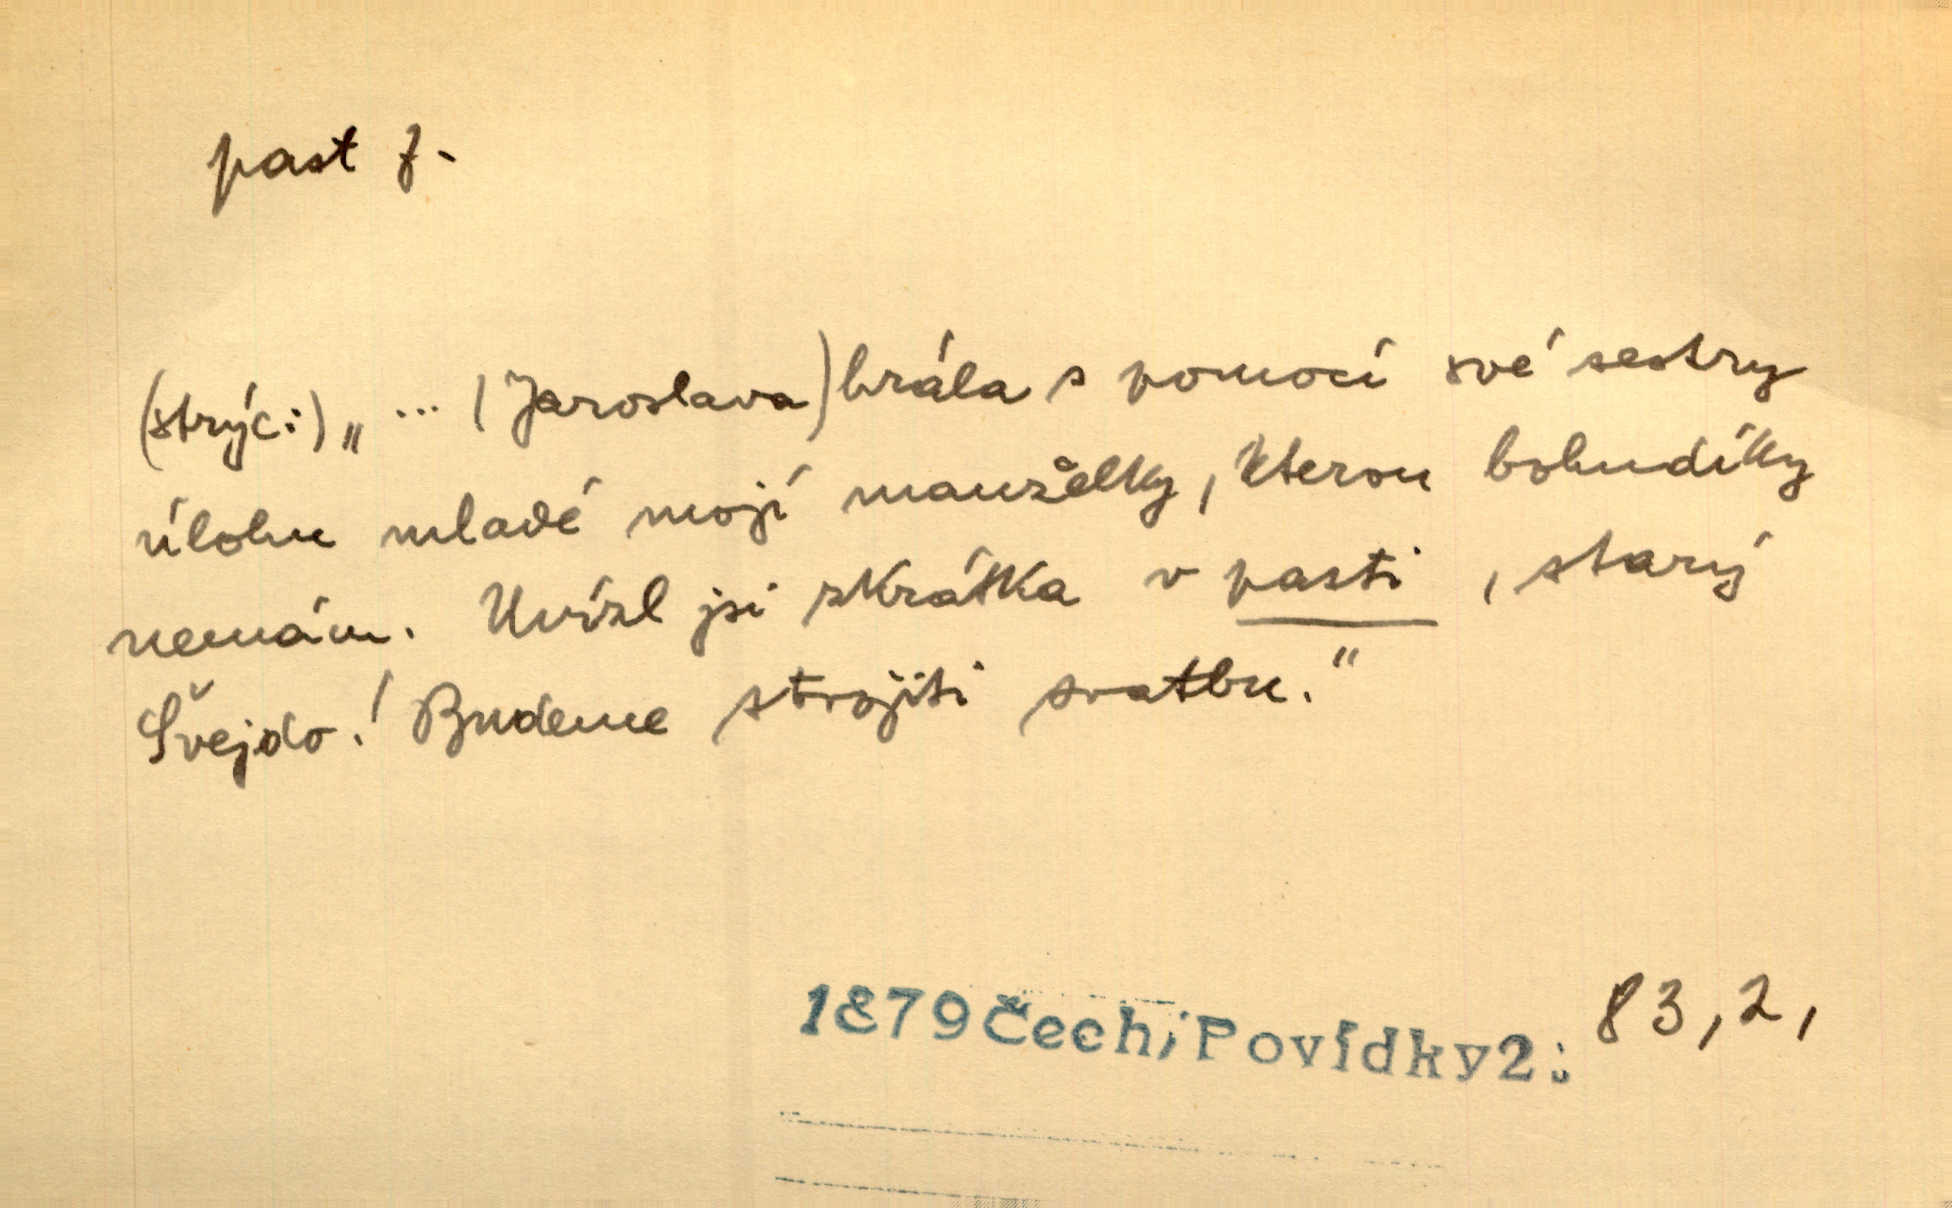 past f.
(strýc:) „ ... (Jaroslava) hrála s pomocí své sestry
úlohu mladé mojí manželky, kterou bohudíky
nemám. Uvízl jsi zkrátka v pasti, starý
Švejdo! Budeme strojiti svatbu."
1879 Čech, Povídky 2: 83, 2,